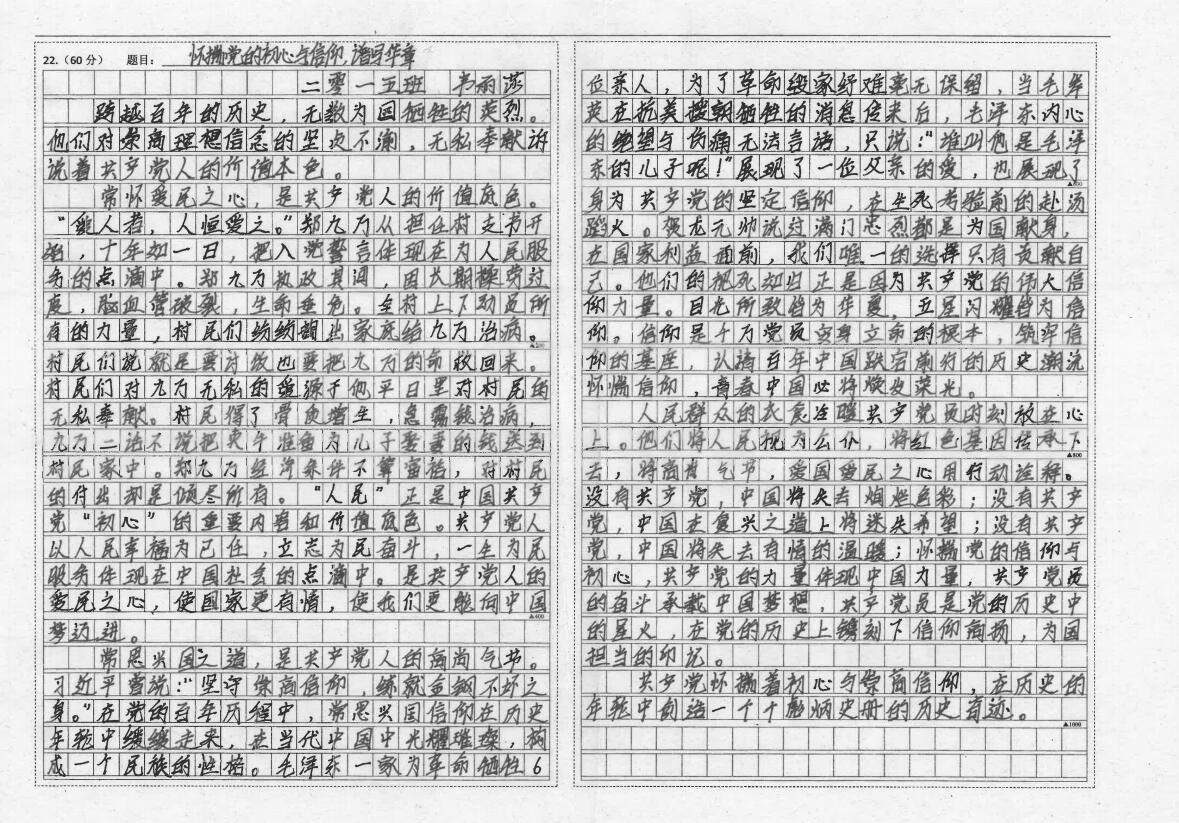 22.（60分） 题目：怀揣党的初心与信仰，谱写华章
二零一五班 韦雨莎
跨越百年的历史，无数为国牺牲的英烈。
他们对崇高理想信念的坚贞不渝，无私奉献诉
说着共产党人的价值本色。
常怀爱民之心，是共产党人的价值底色。
“爱人者，人恒爱之。”郑九万从担任村支书开
始，十年如一日，把入党誓言体现在为人民服
务的点滴中。郑九万执政其间，因长期操劳过
度，脑血管破裂，生命垂危。全村上下动员所
有的力量，村民们纷纷掏出家底给九万治病。
▲200
村民们说就是要讨饭也要把九万的命救回来。
村民们对九万无私的爱源于他平日里对村民的
无私奉献。村民得了骨质增生，急需钱治病，
九万二话不说把卖牛准备为儿子娶妻的钱送到
村民家中。郑九万经济条件不算富裕，对村民
的付出却是倾尽所有。“人民”正是中国共产
党“初心”的重要内容和价值底色。共产党人
以人民幸福为已任，立志为民奋斗，一生为民
服务体现在中国社会的点滴中。是共产党人的
爱民之心，使国家更有情，使我们更能向中国
▲400
梦迈进。
常思兴国之道，是共产党人的高尚气节。
习近平曾说：“坚守崇高信仰，练就金钢不坏之
身。”在党的百年历程中，常思兴国信仰在历史
年轮中缓缓走来，在当代中国中光耀璀璨，构
成一个民族的性格。毛泽东一家为革命牺牲6
位亲人，为了革命毁家纾难毫无保留，当毛岸
英在抗美援朝牺牲的消息传来后，毛泽东内心
的绝望与伤痛无法言语，只说：“谁叫他是毛泽
东的儿子呢！”展现了一位父亲的爱，也展现了
▲600
身为共产党的坚定信仰，在生死考验前的赴汤
蹈火。贺龙元帅说过满门忠烈都是为国献身，
在国家利益面前，我们唯一的选择只有贡献自
己。他们的视死如归正是因为共产党的伟大信
仰力量。目光所致皆为华夏，五星闪耀皆为信
仰。信仰是千万党员安身立命的根本，筑牢信
仰的基座，认清百年中国跌宕前行的历史潮流
怀惴信仰，青春中国必将焕发荣光。
人民群众的衣食冷暖共产党员时刻放在心
上。他们将人民视为公仆，将红色基因传承下
▲800
去，将高尚气节，爱国爱民之心用行动诠释。
没有共产党，中国将失去绚烂色彩；没有共产
党，中国在复兴之道上将迷失希望；没有共产
党，中国将失去有情的温暖；怀揣党的信仰与
初心，共产党的力量体现中国力量，共产党员
的奋斗承载中国梦想，共产党员是党的历史中
的星火，在党的历史上镌刻下信仰高扬，为国
担当的印记。
共产党怀揣着初心与崇高信仰，在历史的
年轮中创造一个个彪炳史册的历史奇迹。
▲1000